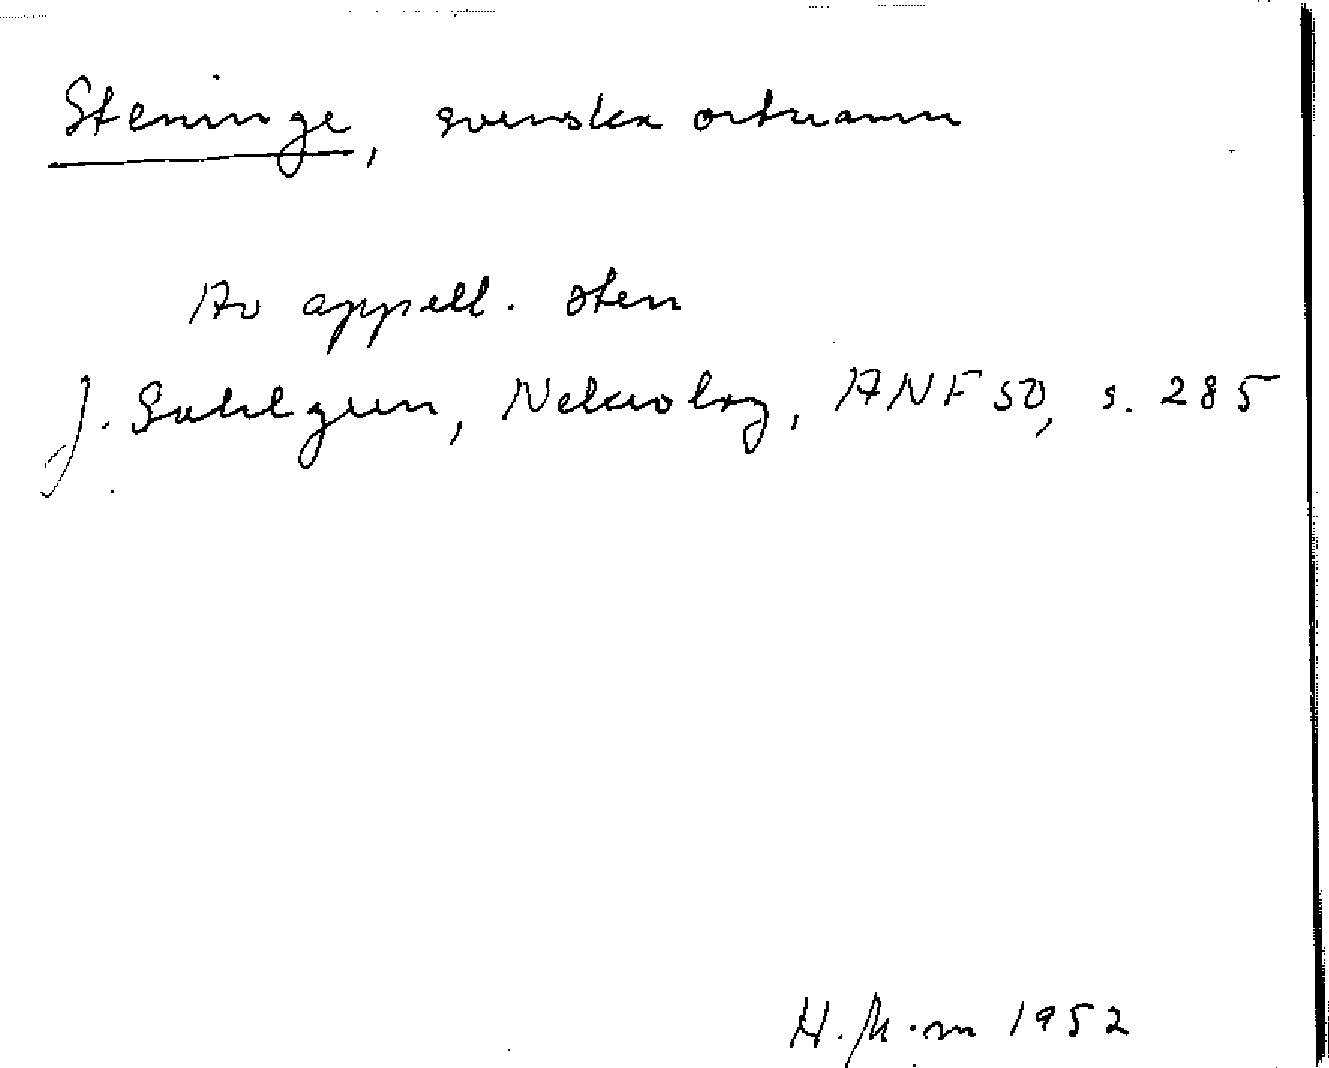 Steninge, svenska ortnamn
Av appell. sten
J. Sahlgren, Nekrolog, ANF 50, s. 285
H. M-m 1952